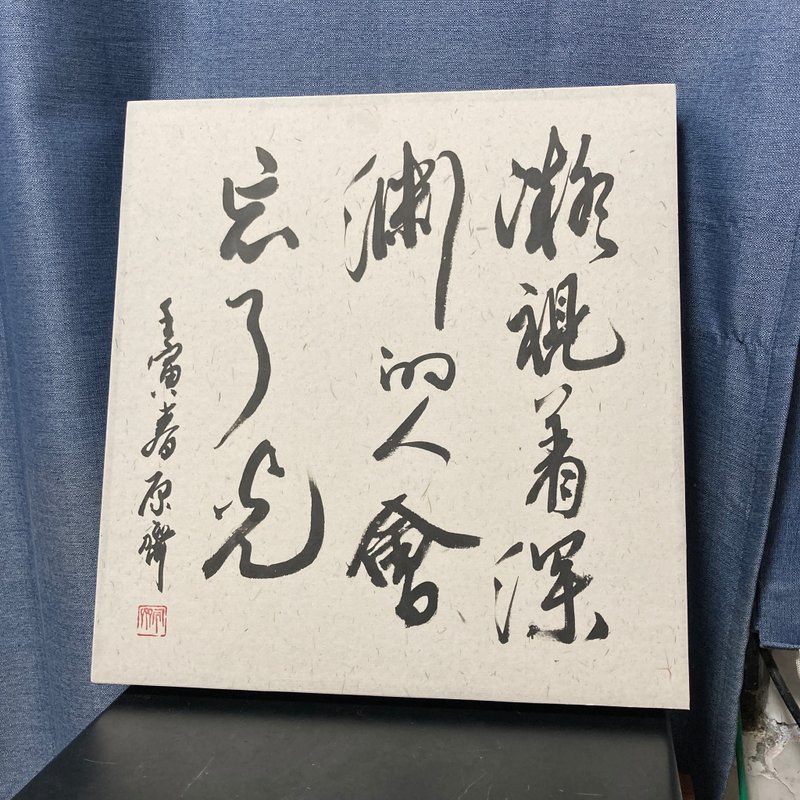 凝視着深
渊的人會
忘了光
壬寅春原齊